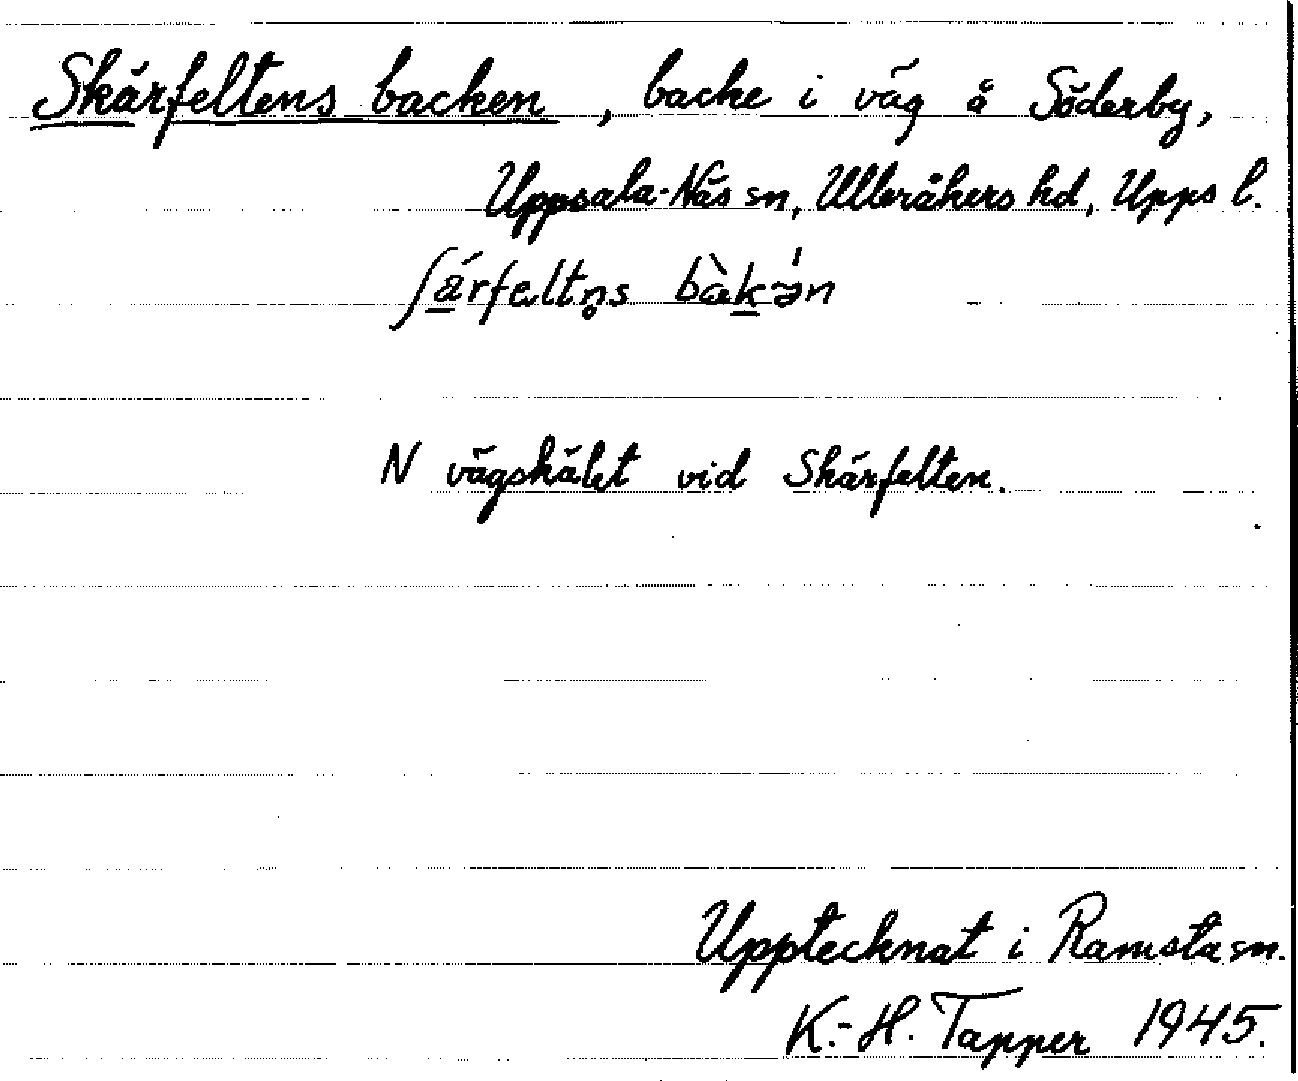 Skärfeltens backen, backe i väg å Söderby,
Uppsala-Näs sn, Ulleråkers hd, Upps l.
ʃä́rfæltn̥s bàk-ə́n
N vägskälet vid Skärfelten.
Upptecknat i Ramsta sn.
K.-H. Tapper 1945.